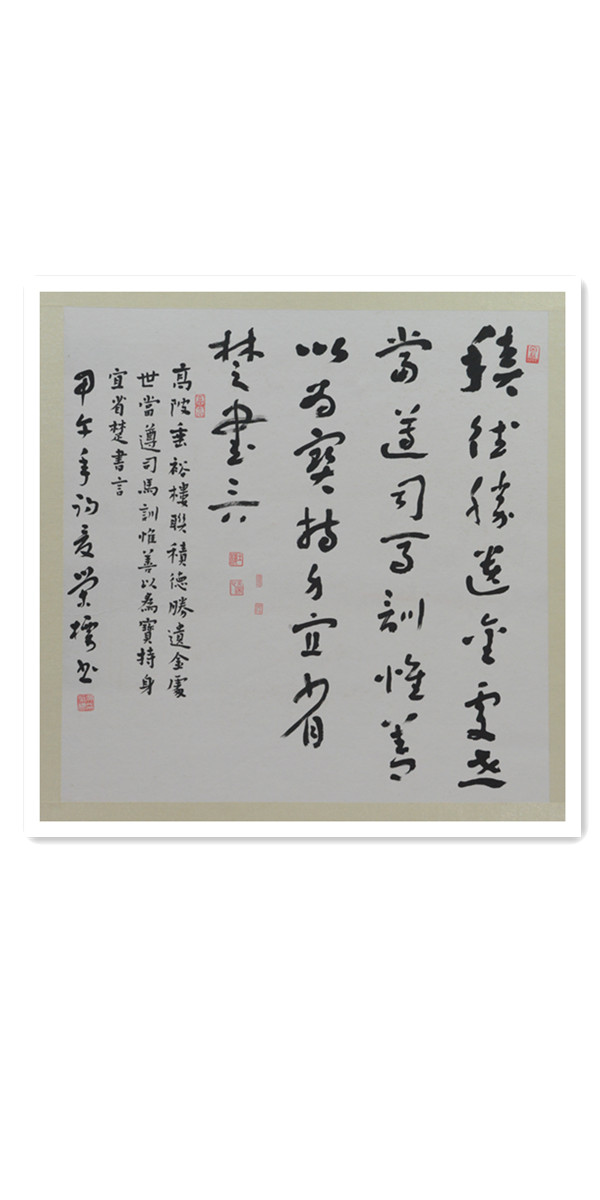 積德勝遺金處世
當遵司馬訓惟善
以為寶持身宜省
楚書言
高陂垂裕樓聯積德勝遺金處
世當遵司馬訓惟善以為寶持身
宜省楚書言
甲午年詢爰榮標书